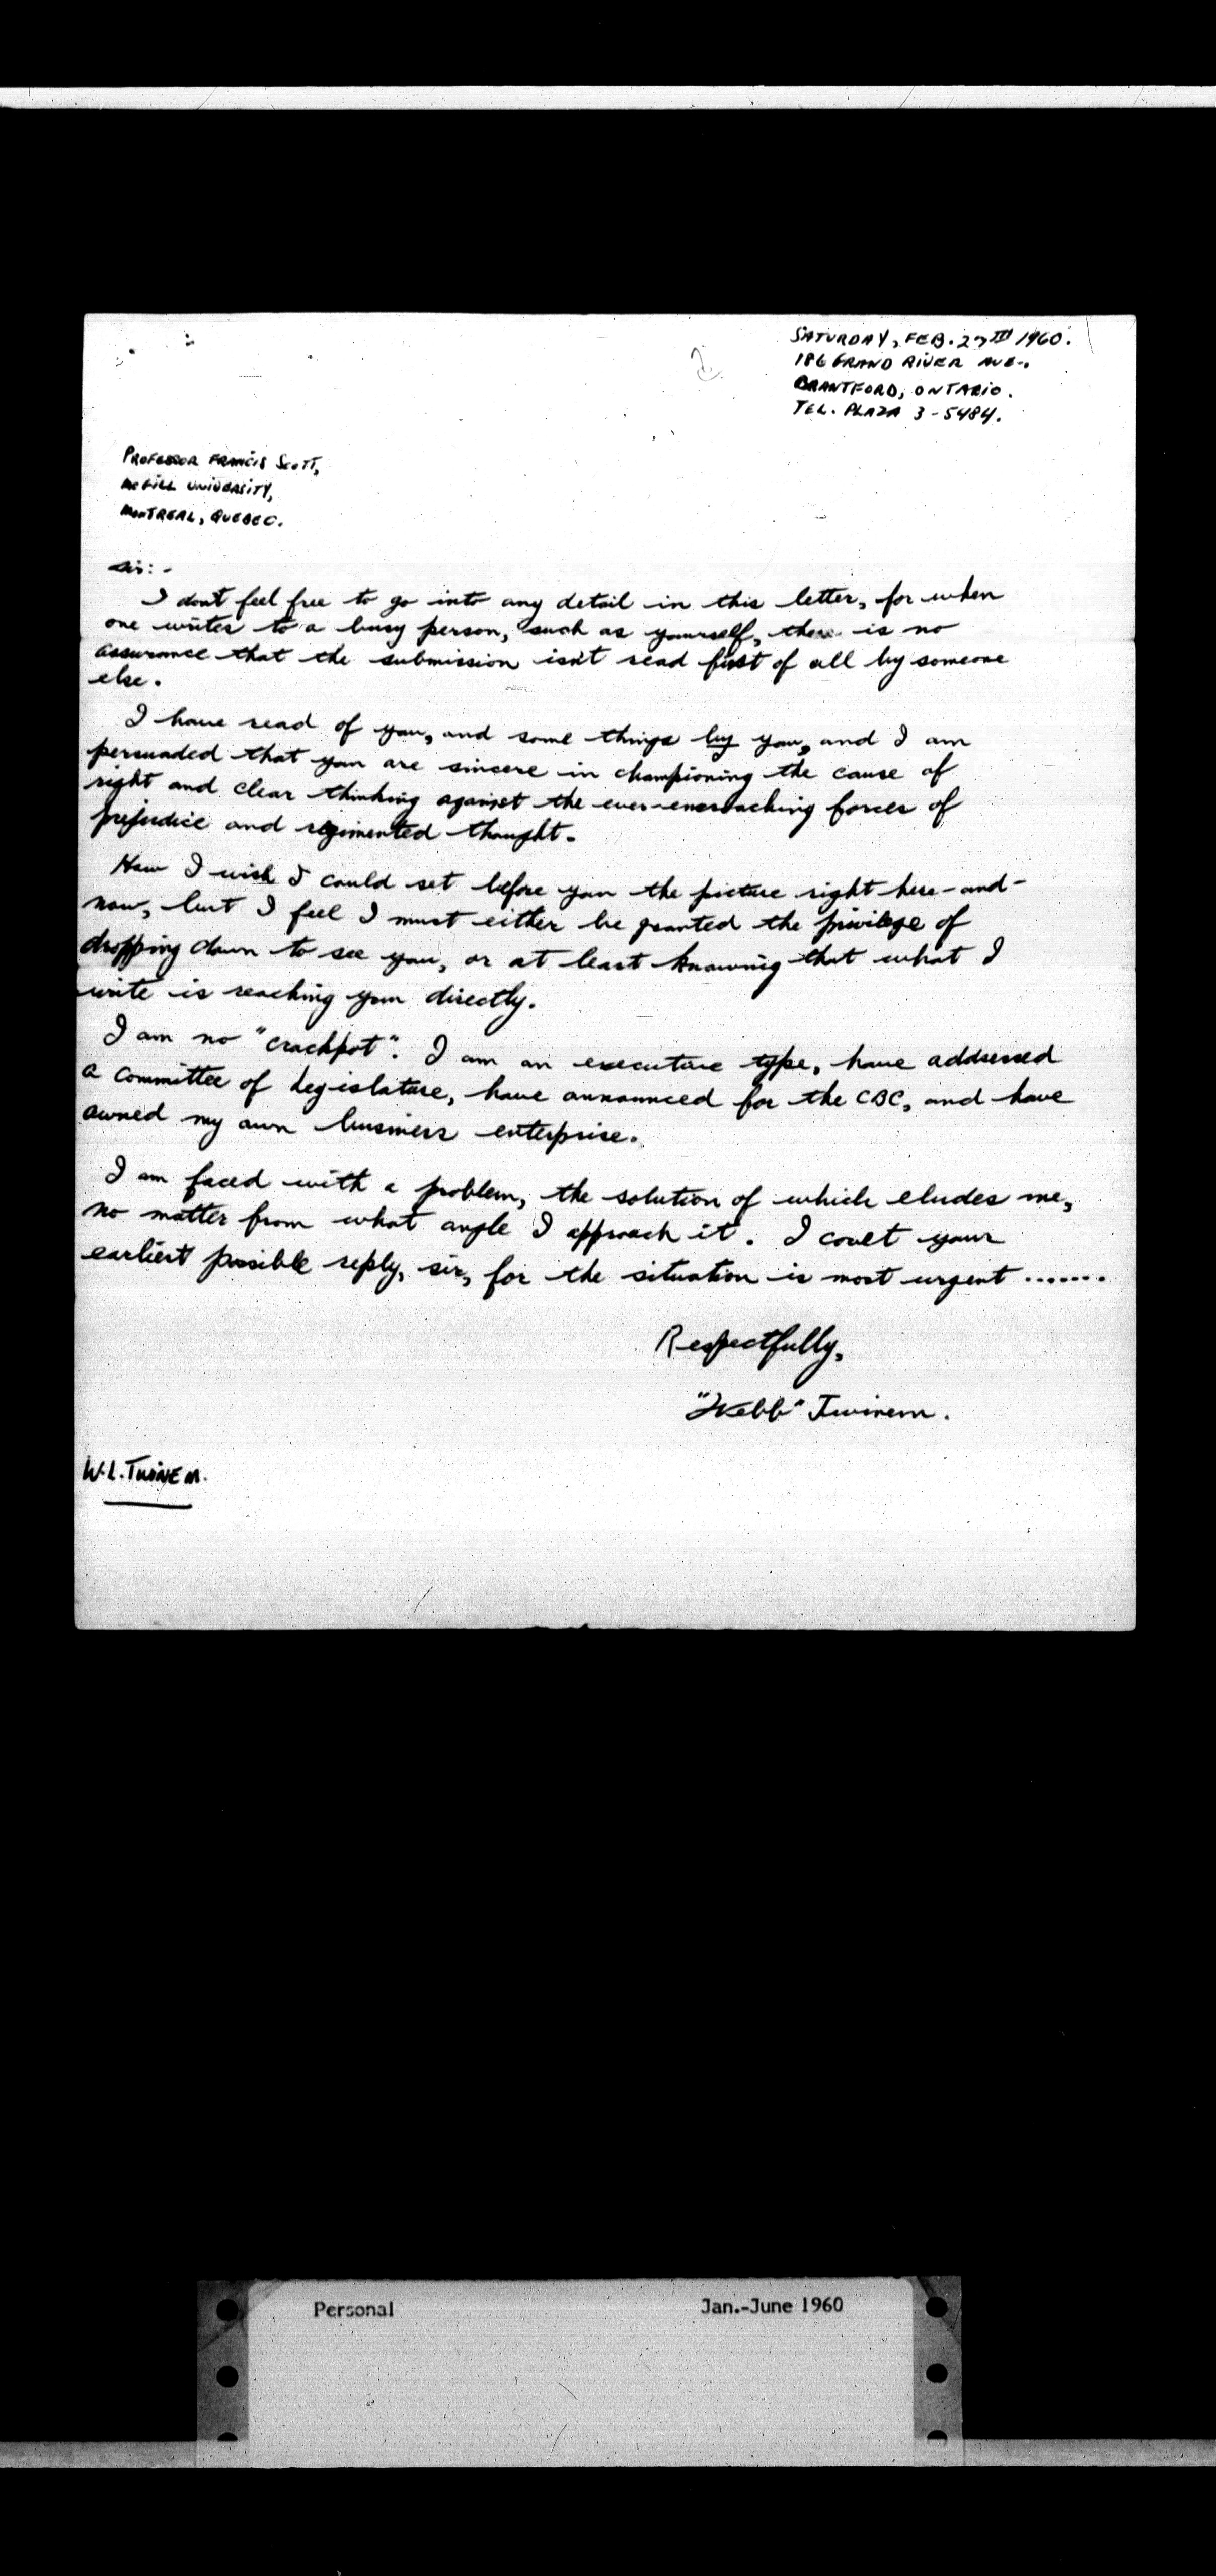 SATURDAY, FEB. 27TH 1960.
186 GRAND RIVER AVE.,
BRANTFORD, ONTARIO.
TEL. PLAZA 3-5484.
PROFESSOR FRANCIS SCOTT,
McGILL UNIVERSITY,
MONTREAL, QUEBEC.
Sir:-
I don't feel free to go into any detail in this letter, for when
one writes to a busy person, such as yourself, there is no
assurance that the submission isn't read first of all by someone
else.
I have read of you, and some things by you, and I am
persuaded that you are sincere in championing the cause of
right and clear thinking against the ever-encroaching forces of
prejudice and regimented thought.
How I wish I could set before you the picture right here-and-
now, but I feel I must either be granted the privilege of
dropping down to see you, or at least knowing that what I
write is reaching you directly.
I am no "crackpot". I am an executive type, have addressed
a committee of Legislature, have announced for the CBC, and have
owned my own business enterprise.
I am faced with a problem, the solution of which eludes me,
no matter from what angle I approach it. I covet your
earliest possible reply, sir, for the situation is most urgent .......
Respectfully,
"Webb" Twinem.
W.L. TWINEM.
Personal Jan.-June 1960